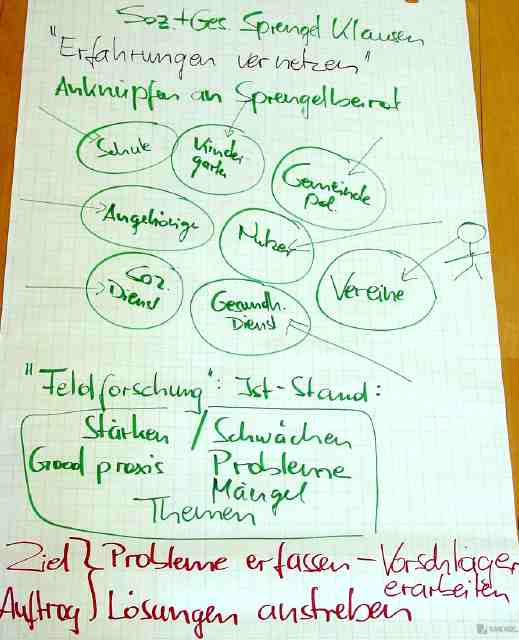 Soz.+Ges. Sprengel Klausen
"Erfahrungen vernetzen"
Anknüpfen an Sprengelbeirat
Schule
Kinder
garten
Gemeinde
Pol.
Angehörige
Nutzer
Soz.
Dienst
Gesundh.
Dienst
Vereine
"Feldforschung": Ist-Stand:
Stärken / Schwächen
Good praxis Probleme
Mängel
Themen
Ziel } Probleme erfassen – Vorschläge
erarbeiten
Auftrag } Lösungen anstreben